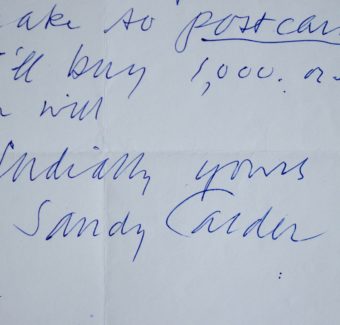 ake so postcar
I'll buy 1,000. or
n will
Cordially yours
Sandy Calder